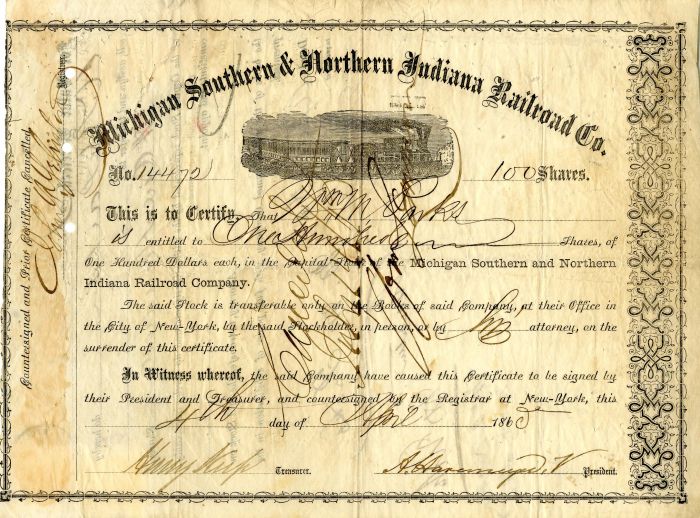 Michigan Southern & Northern Indiana Railroad Co.
No. 14472
100 Shares.
This is to Certify, That Wm M. Parks
is entitled to One Hundred Shares, of
One Hundred Dollars each, in the Capital Stock of the Michigan Southern and Northern
Indiana Railroad Company.
The said Stock is transferable only on the Books of said Company, at their Office in
the City of New-York, by the said Stockholder, in person, or by his attorney, on the
surrender of this certificate.
In Witness whereof, the said Company have caused this Certificate to be signed by
their President and Treasurer, and countersigned by the Registrar at New-York, this
4th day of April 1865
Henry Keep Treasurer. President.
Countersigned and Prior Certificate Cancelled